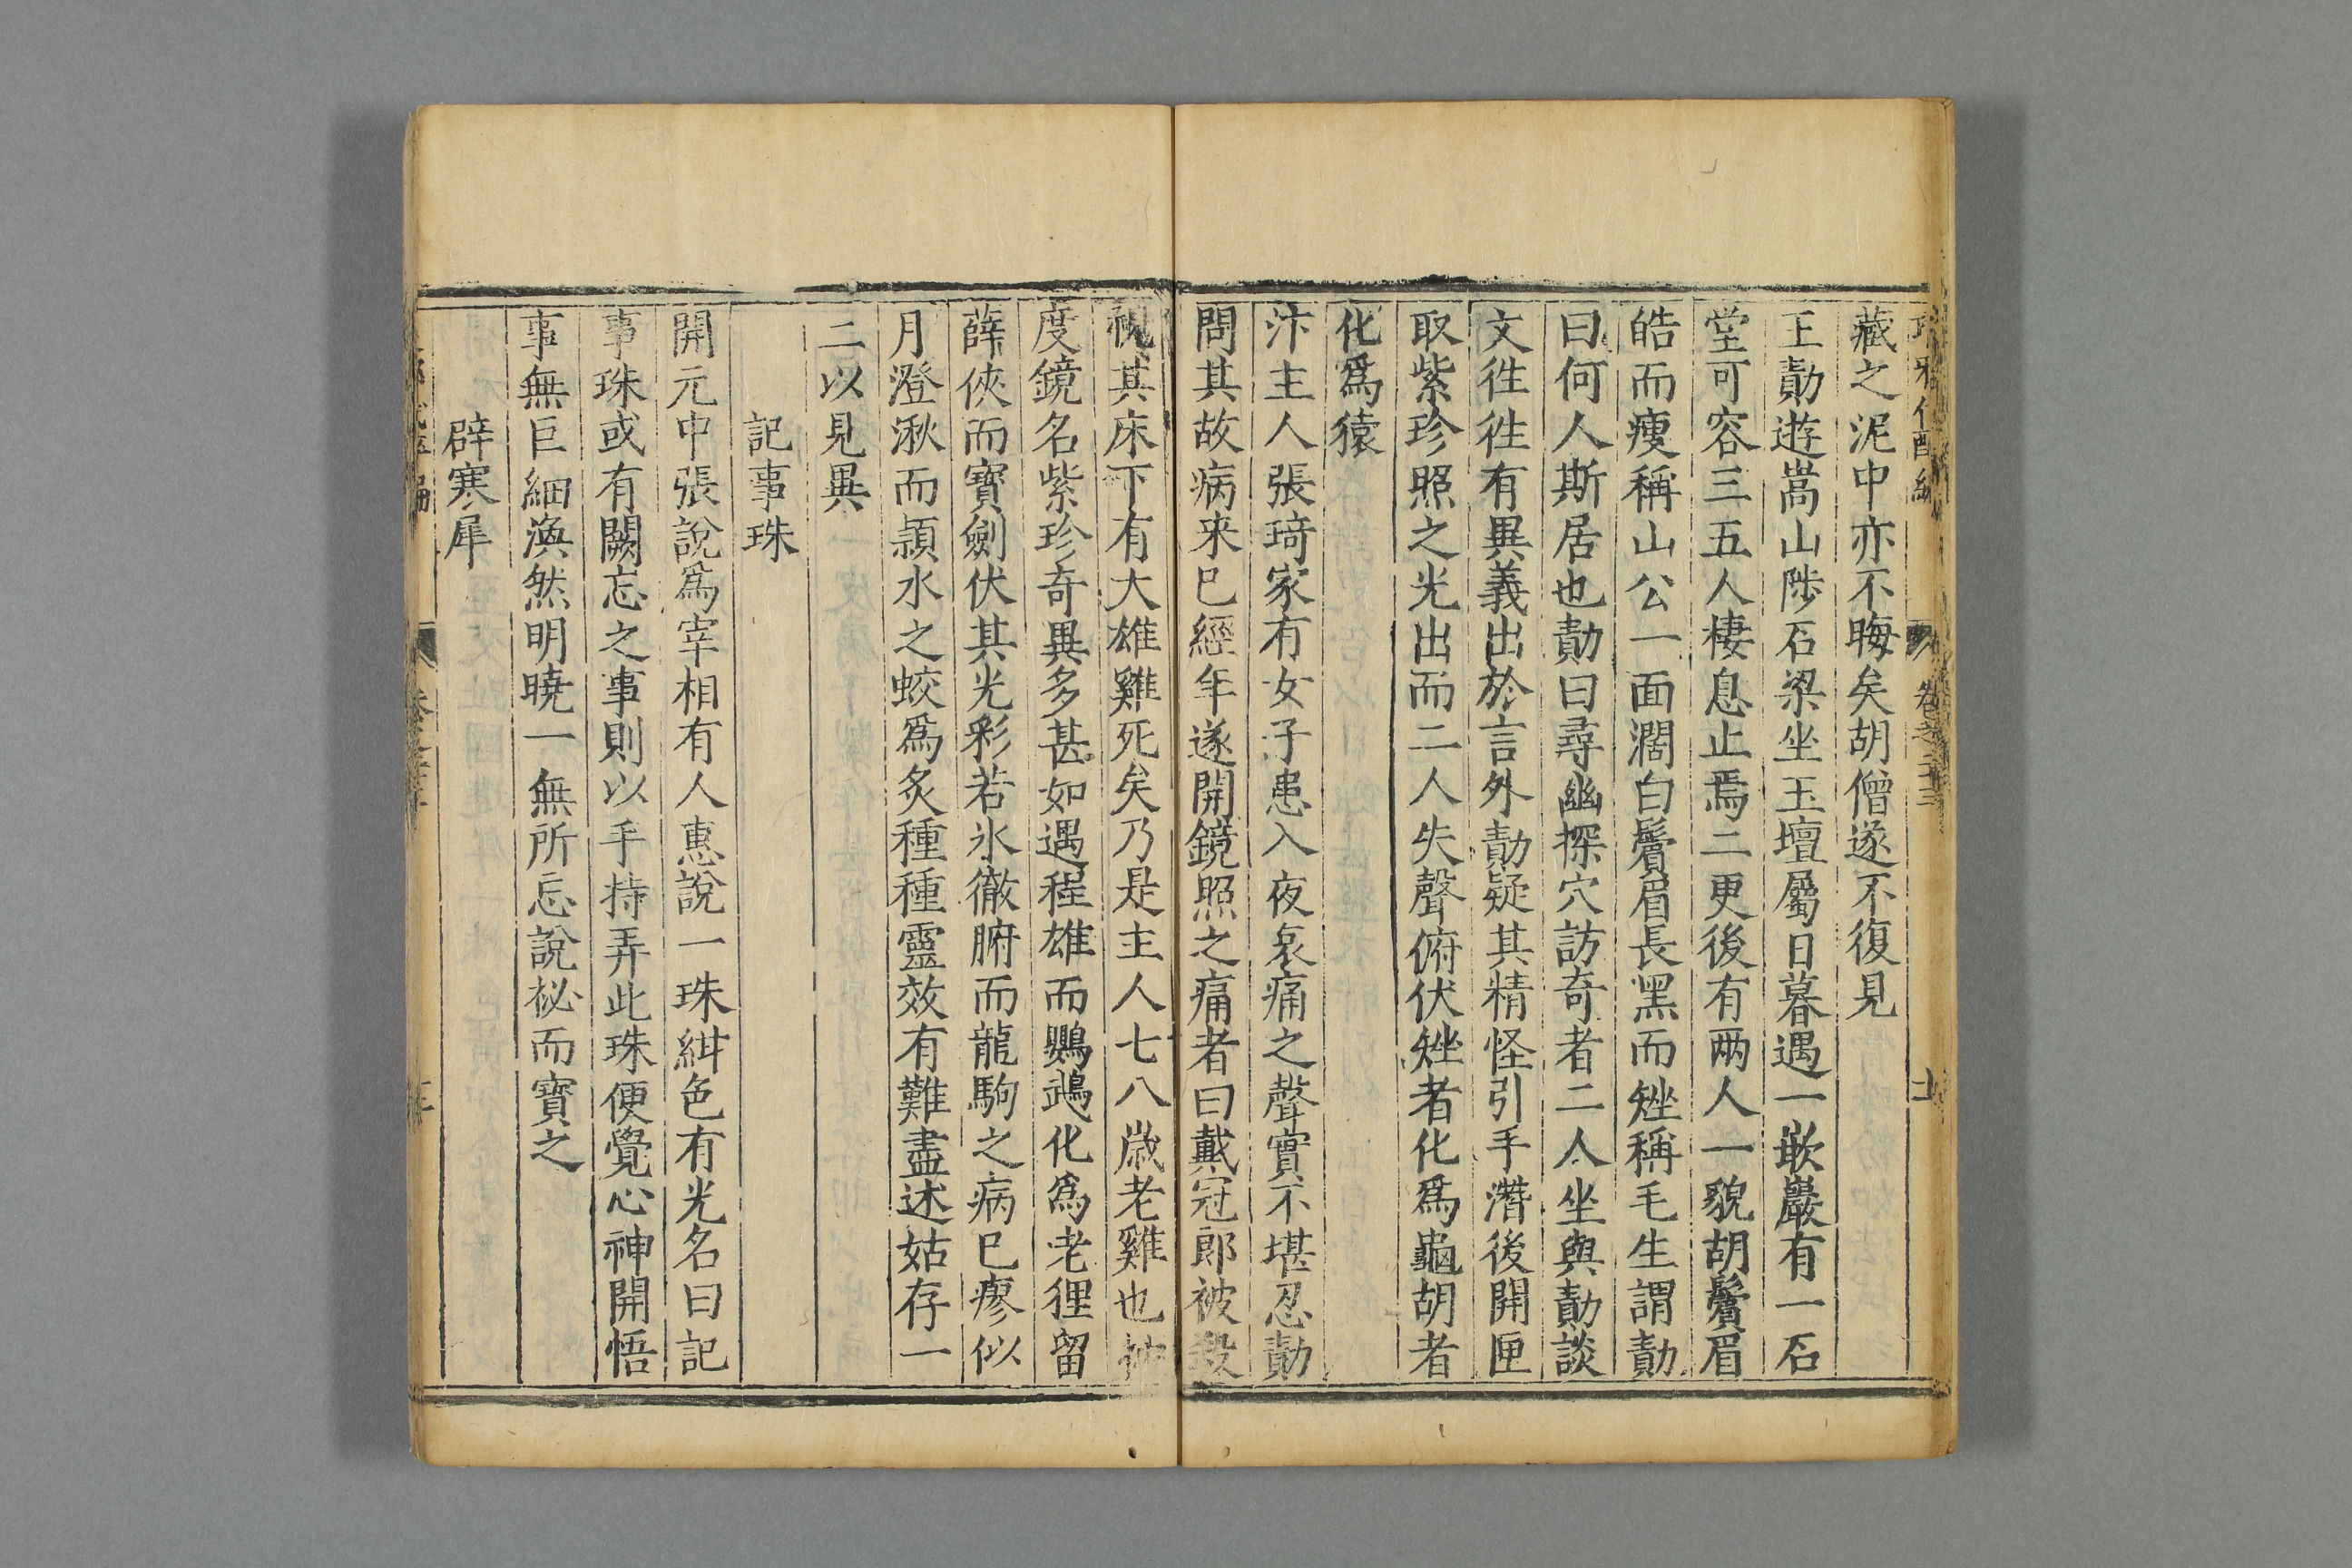 藏之泥中亦不晦矣胡僧遂不復見
王勣遊嵩山陟石梁坐玉壇屬日暮遇一嵌巖有一石
堂可容三五人棲息止焉二更後有兩人一貌胡鬢眉
皓而瘦稱山公一面濶白鬢眉長黑而矬稱毛生謂勣
曰何人斯居也勣曰尋幽探穴訪奇者二人坐與勣談
文徃徃有異義出於言外勣疑其精怪引手潛後開匣
取紫珍照之光出而二人失聲俯伏矬者化爲龜胡者
化爲猿
汴主人張琦家有女子患入夜哀痛之聲實不堪忍勣
問其故病来已經年遂開鏡照之痛者曰戴冠郎被殺
視其床下有大雄雞死矣乃是主人七八歳老雞也
度鏡名紫珍奇異多甚如遇程雄而鸚鵡化爲老狸留
薛俠而寶劍伏其光彩若氷徹腑而龍駒之病已瘳似
月澄湫而頴水之蛟爲炙種種靈效有難盡述姑存一
二以見異
記事珠
開元中張說爲宰相有人惠說一珠紺色有光名曰記
事珠或有闕忘之事則以手持弄此珠便覺心神開悟
事無巨細渙然明曉一無所忘說祕而寶之
辟寒犀